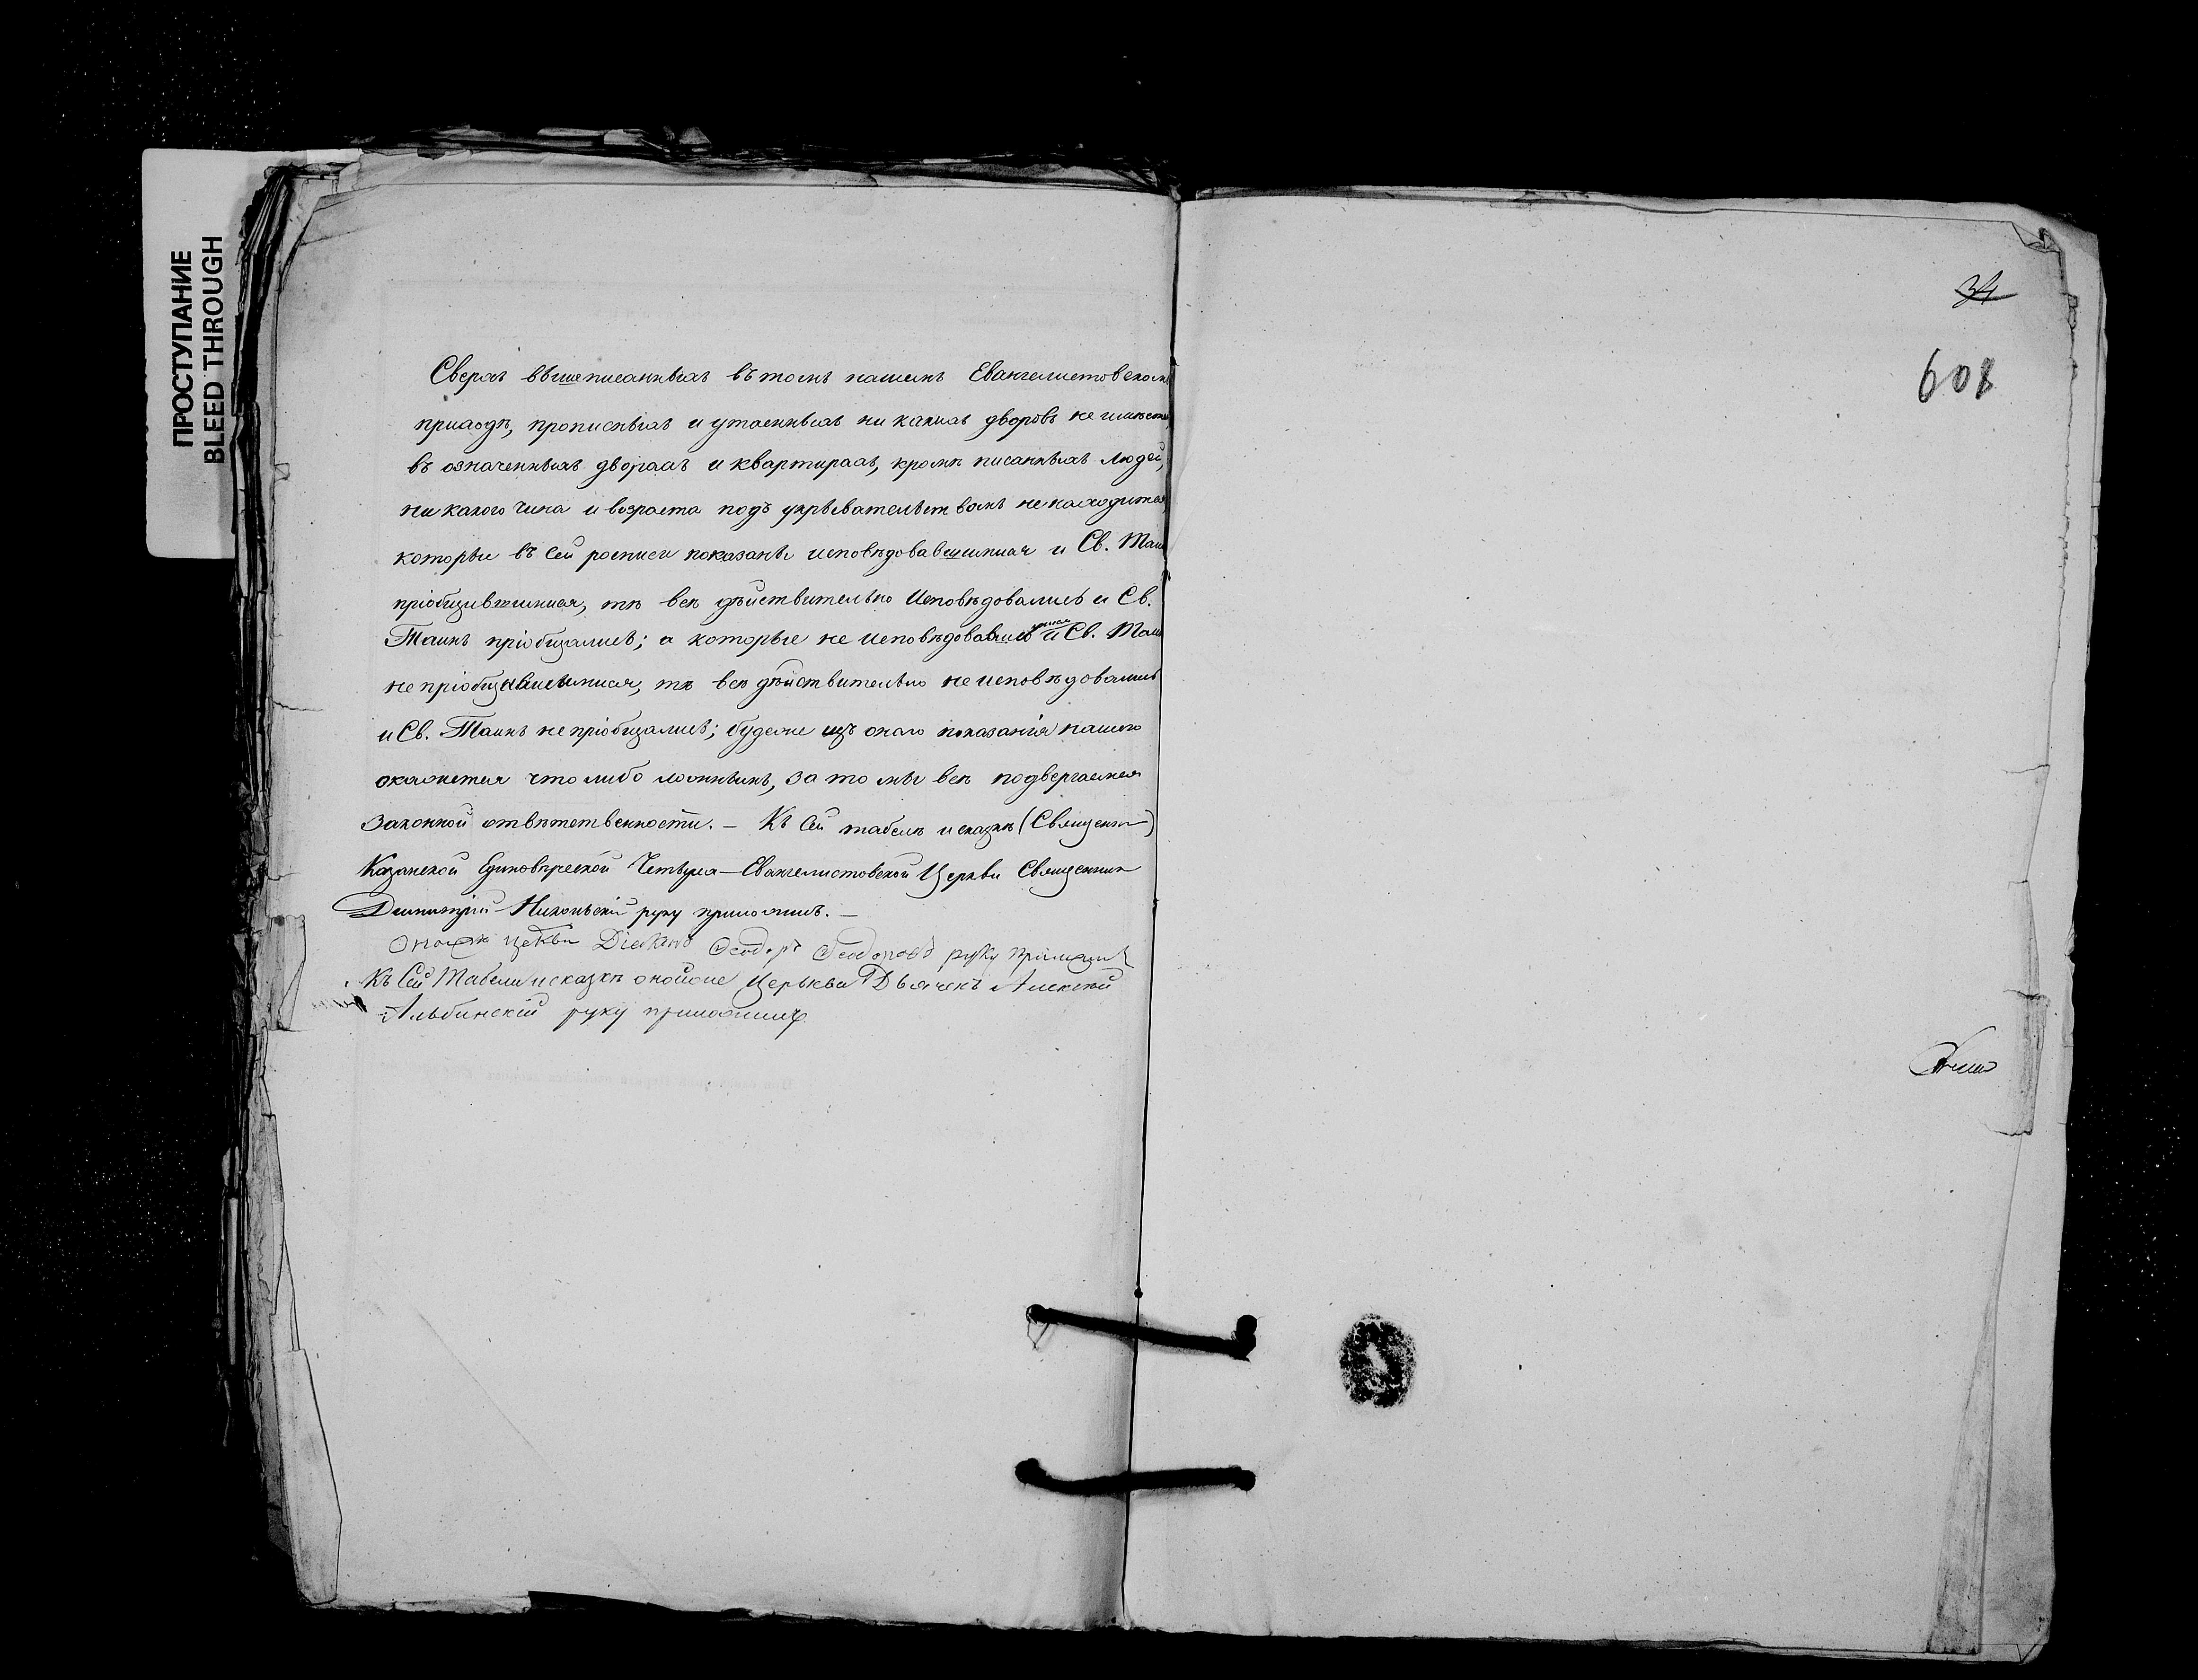 ПРОСТУПАНИЕ
BLEED THROUGH
Сверхъ вышеписанныхъ въ томъ нашемъ Евангелистовском
приходѣ, прописныхъ и утаенныхъ ни какихъ дворовъ не имѣется
въ означенныхъ дворахъ и квартирахъ, кромѣ писанныхъ людей,
ни какого чина и возраста подъ укрывательствомъ не находится,
которые въ сей росписи показаны исповѣдовавшимися и Св. Таин
пріобщившимися, тѣ всѣ дѣйствительно Исповѣдовались и Св.
Таинъ пріобщались; а которые не исповѣдовались и Св. Таин
не пріобщавшимися, тѣ всѣ дѣйствительно не исповѣдовались
и Св. Таинъ не пріобщались; будеже изъ онаго показанія нашего
окажется что либо ложнымъ, за то мы всѣ подвергаемся
законной отвѣтственности. – Къ сей табели и сказкѣ (Священник)
Казанской Единовѣрческой Четырех–Евангелистовской Церкви Священник
Димитрій Никольскій руку приложилъ. –
Оной же цекви Діяконъ Феодоръ Феодоровъ руку приложилъ
Къ сей Табели и сказкѣ онойже Церькви Дьячекъ Алексѣй
Альбинскій руку приложилъ
34
601